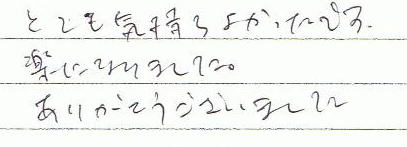 とても気持ちよかったです.
楽になりました。
ありがとうございました